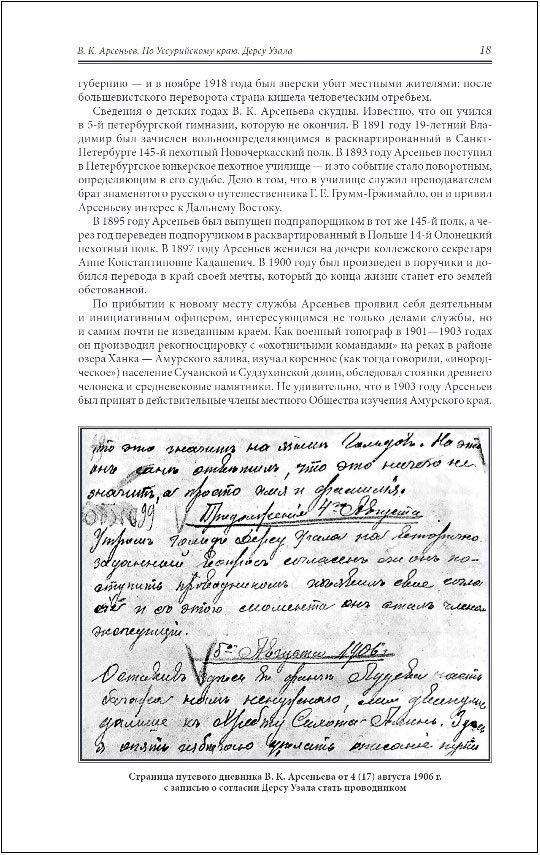 В. К. Арсеньев. По Уссурийскому краю. Дерсу Узала 18
губернию — и в ноябре 1918 года был зверски убит местными жителями: после
большевистского переворота страна кишела человеческим отребьем.
Сведения о детских годах В. К. Арсеньева скудны. Известно, что он учился
в 5-й петербургской гимназии, которую не окончил. В 1891 году 19-летний Вла-
димир был зачислен вольноопределяющимся в расквартированный в Санкт-
Петербурге 145-й пехотный Новочеркасский полк. В 1893 году Арсеньев поступил
в Петербургское юнкерское пехотное училище — и это событие стало поворотным,
определяющим в его судьбе. Дело в том, что в училище служил преподавателем
брат знаменитого русского путешественника Г. Е. Грумм-Гржимайло, он и привил
Арсеньеву интерес к Дальнему Востоку.
В 1895 году Арсеньев был выпущен подпрапорщиком в тот же 145-й полк, а че-
рез год переведен подпоручиком в расквартированный в Польше 14-й Олонецкий
пехотный полк. В 1897 году Арсеньев женился на дочери коллежского секретаря
Анне Константиновне Кадашевич. В 1900 году был произведен в поручики и до-
бился перевода в край своей мечты, который до конца жизни станет его землей
обетованной.
По прибытии к новому месту службы Арсеньев проявил себя деятельным
и инициативным офицером, интересующимся не только делами службы, но
и самим почти не изведанным краем. Как военный топограф в 1901—1903 годах
он производил рекогносцировку с «охотничьими командами» на реках в районе
озера Ханка — Амурского залива, изучал коренное (как тогда говорили, «инород-
ческое») население Сучанской и Судзухинской долин, обследовал стоянки древнего
человека и средневековые памятники. Не удивительно, что в 1903 году Арсеньев
был принят в действительные члены местного Общества изучения Амурского края.
что это значитъ на языкѣ Гольдовъ. На это
онъ самъ отвѣтилъ, что это ничего не
значитъ, а просто имя и фамилія.
99 Продолженіе 4го Августа
Утромъ гольдъ Дерсу Узала на вторично
заданный вопросъ согласенъ ли онъ по-
ступить проводникомъ изъявилъ свое согла-
сіе и съ этого момента онъ сталъ членомъ
экспедиціи.
5го Августа 1906 г.
Оставивъ здѣсь въ фанзѣ часть
багажа намъ ненужнаго, мы двинулись
дальше къ хребту Сихотэ-Алинь. Здѣсь
я опять описаніе
Страница путевого дневника В. К. Арсеньева от 4 (17) августа 1906 г.
с записью о согласии Дерсу Узала стать проводником